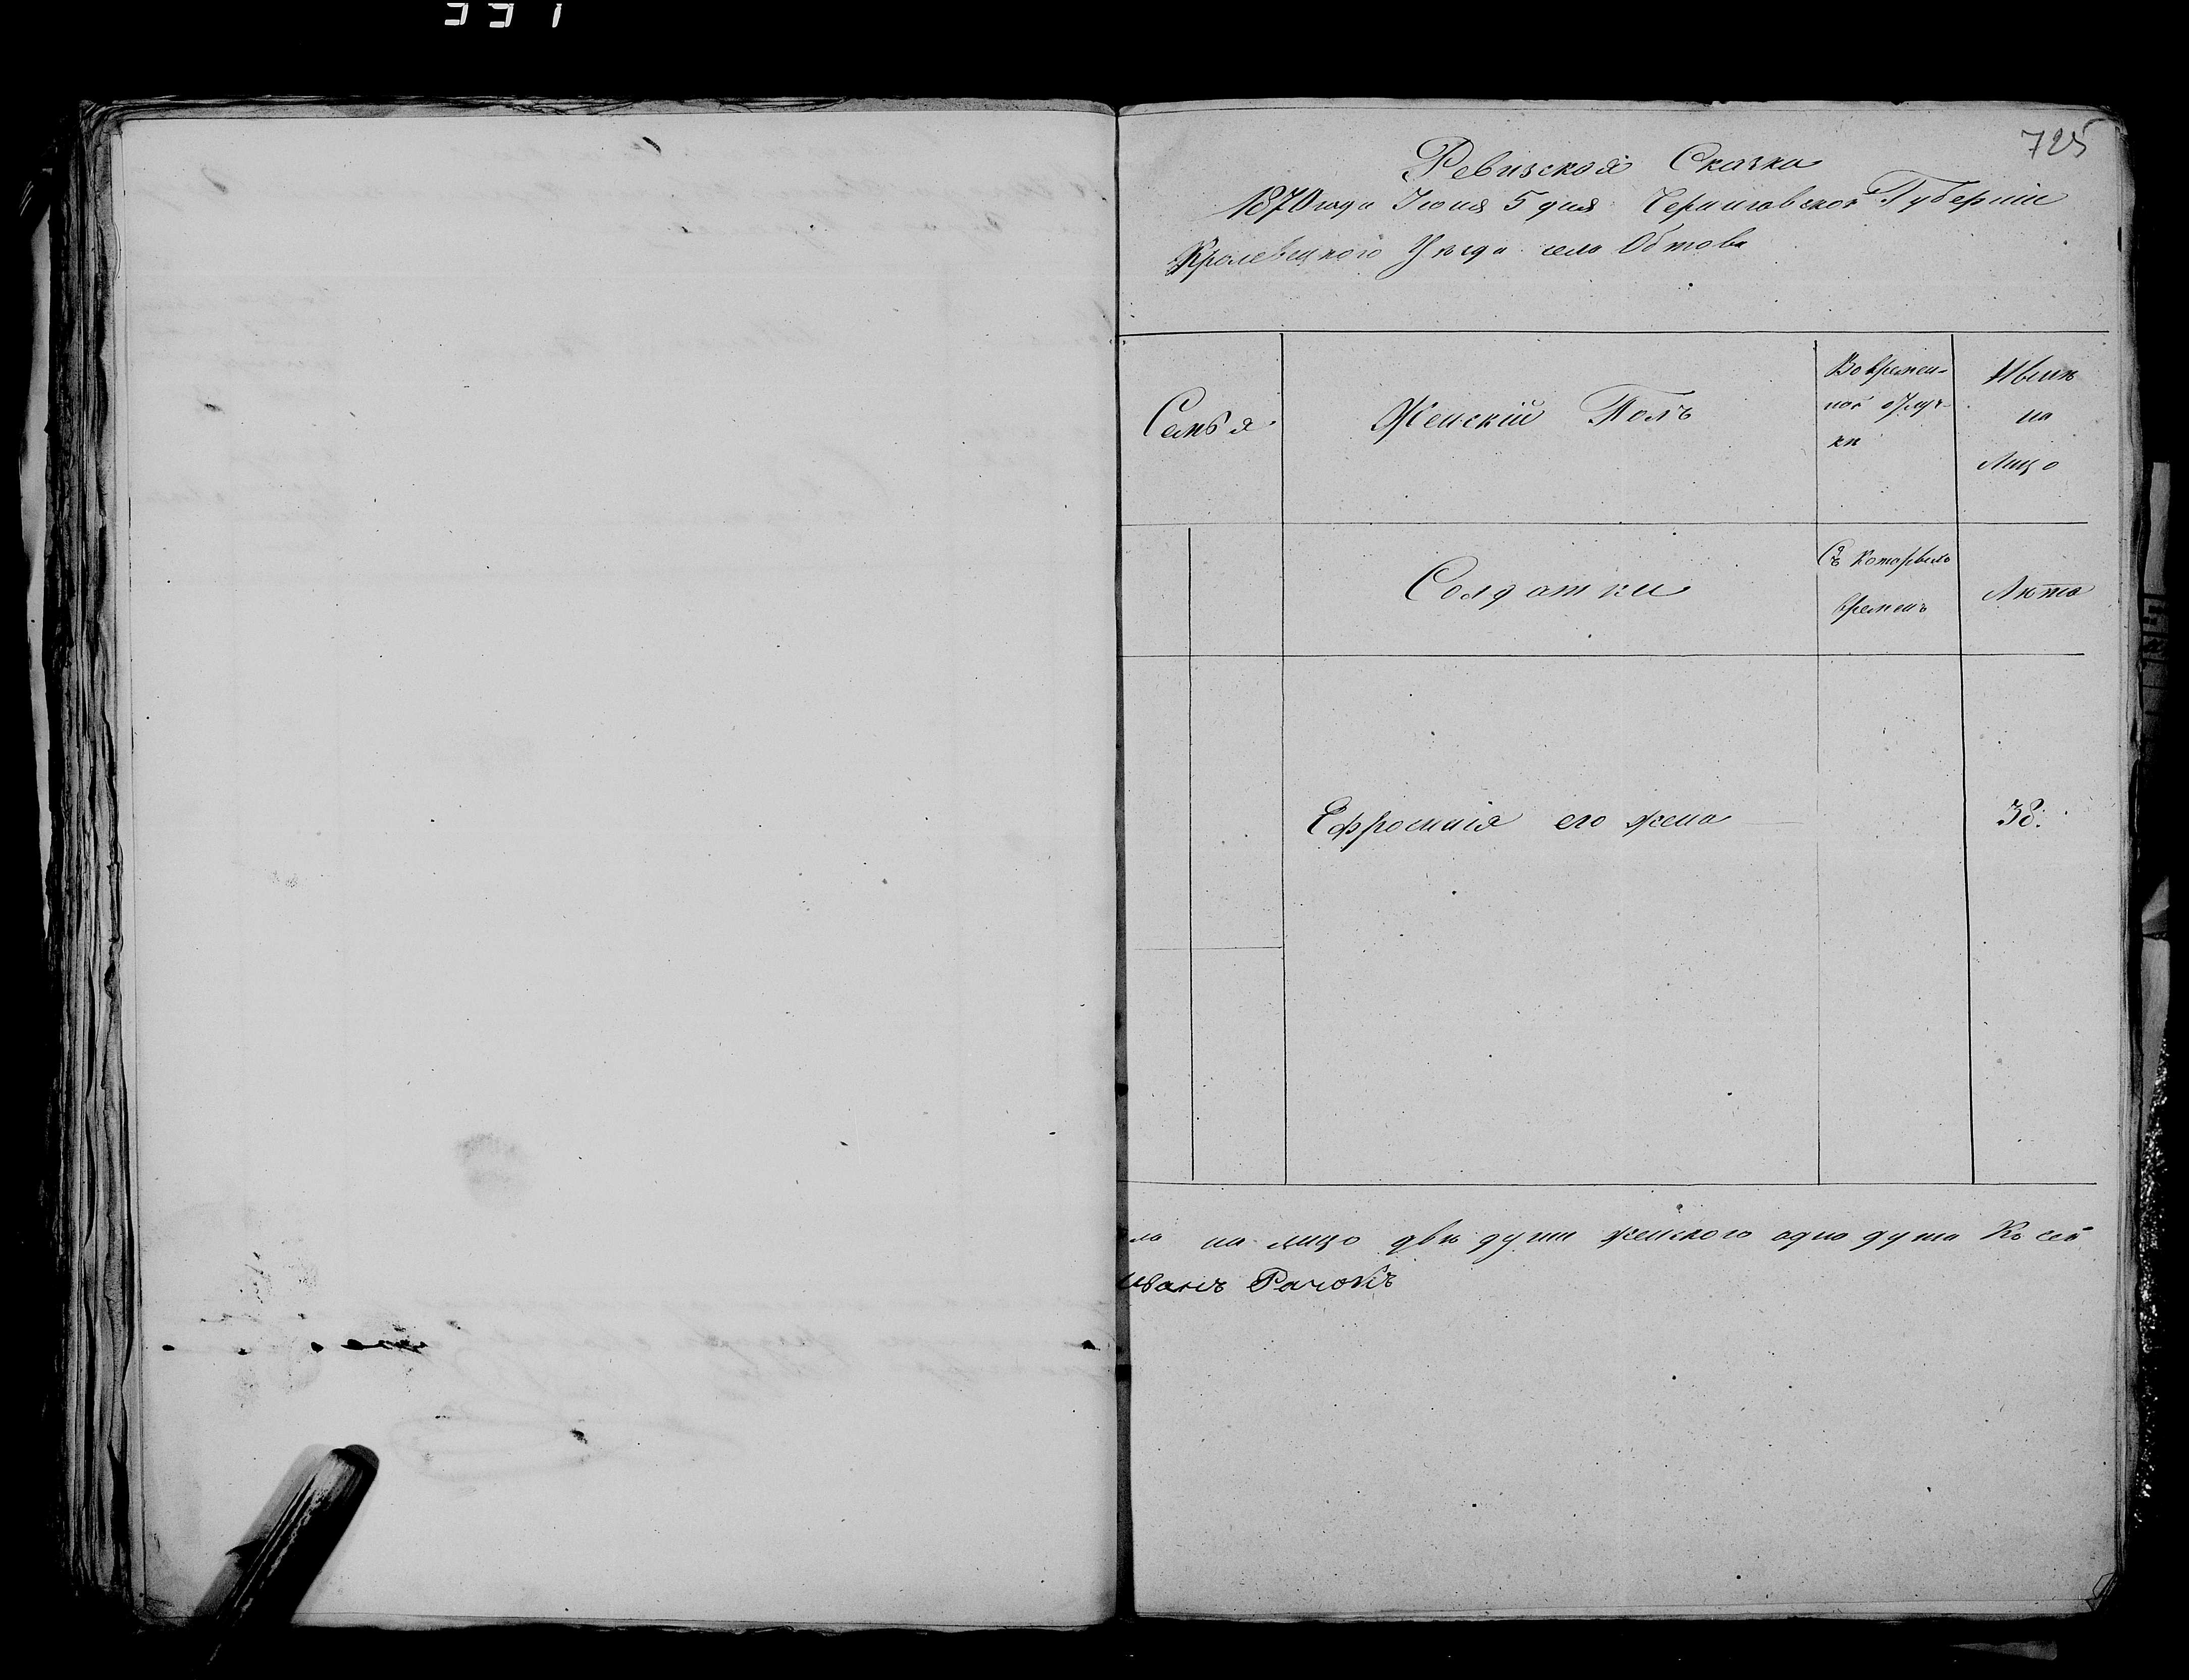 331
725
Ревизская Сказка
1870 года Июня 5 дня Черниговской Губернiи
Кролевецкого Уѣзда села Обтова
Семья
Женскiй Полъ
Во времен-
ной отлуч-
кѣ
Нынѣ
на
Лицо
Солдатки
Съ которыхъ
временъ
Лѣта
Ефросинiя его жена
38.
ла на лицо двѣ души женского одна душа Къ сей
Иванъ